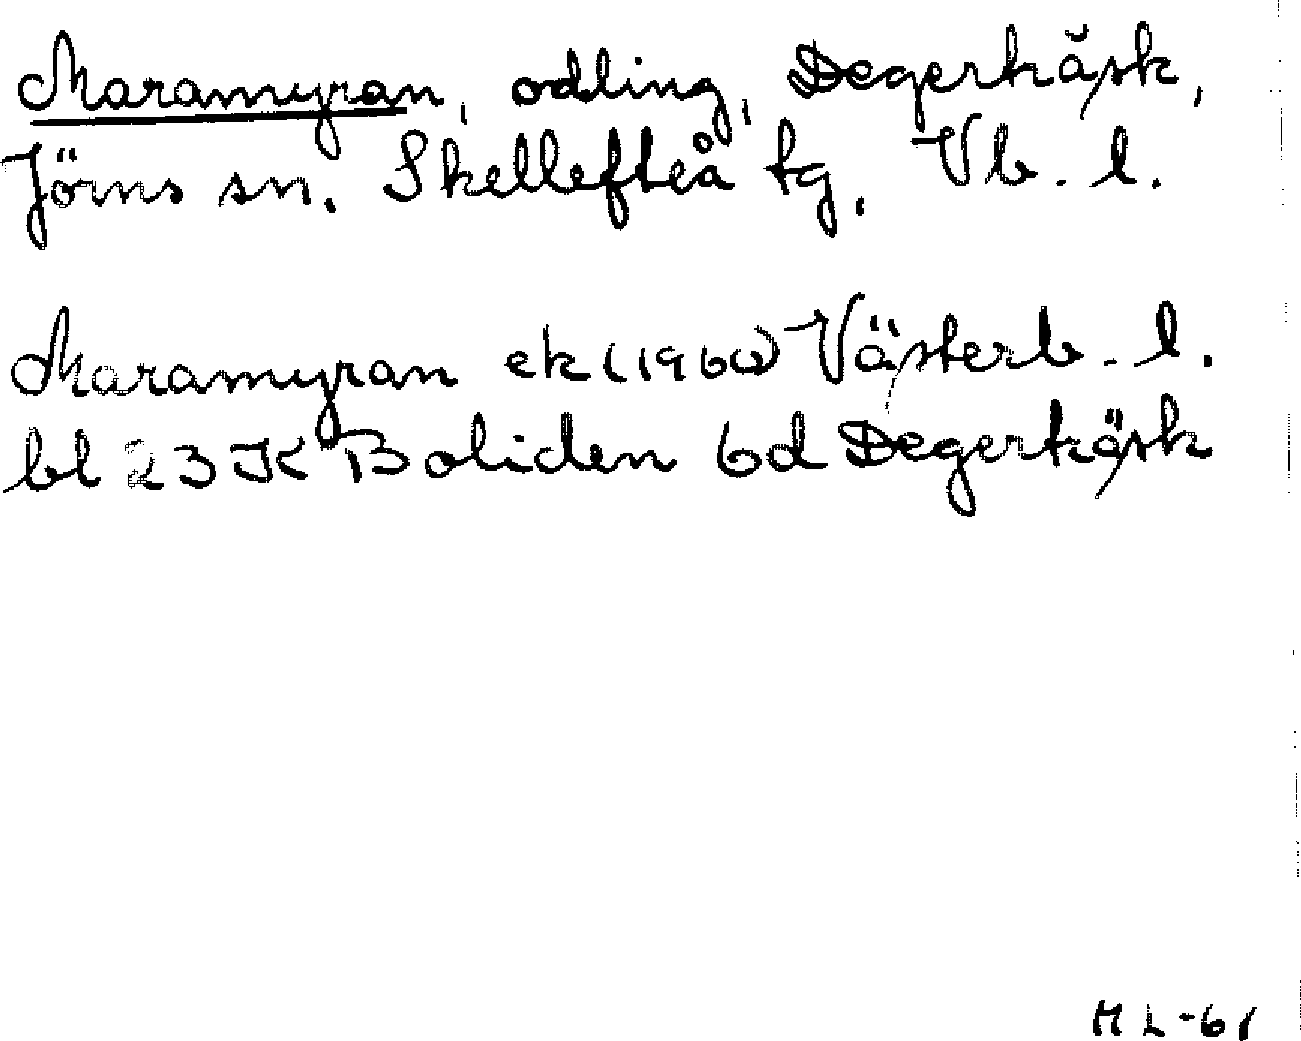 Maramyran, odling, Degerträsk,
Jörns sn. Skellefteå tg, Vb. l.
Maramyran ek (1960) Västerb. l.
bl 23 K Boliden 6d Degerträsk
ML-61